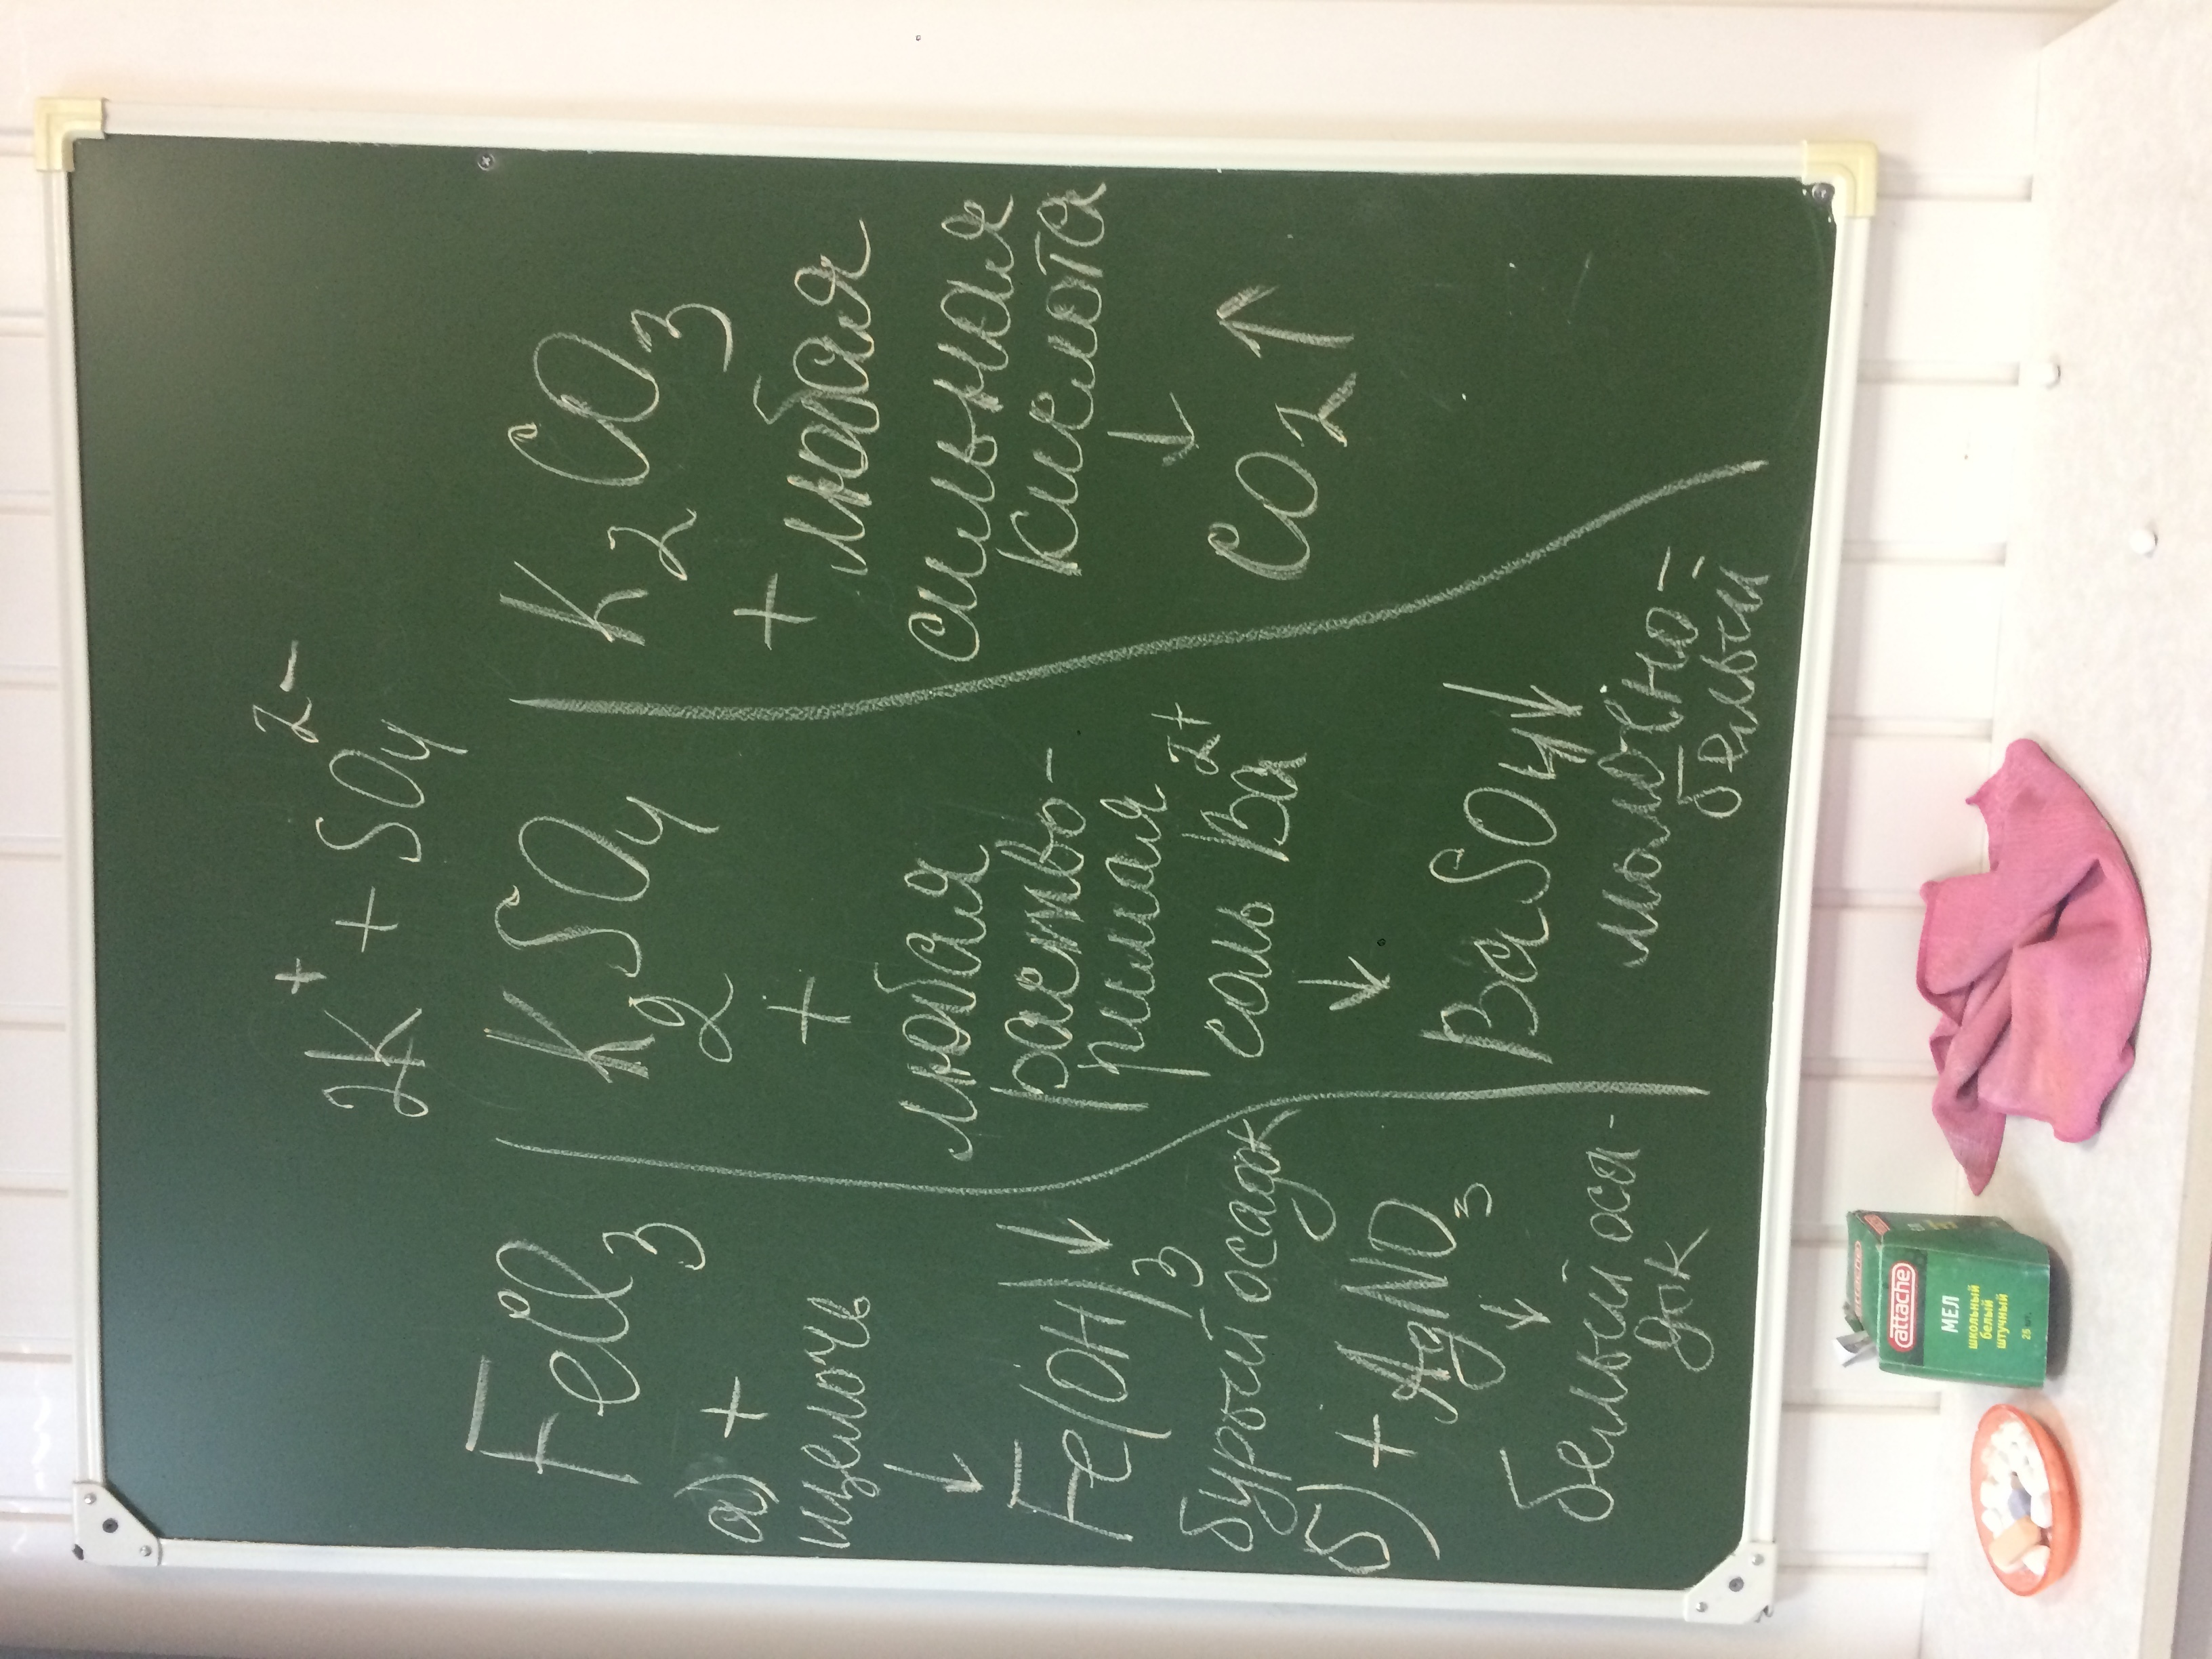 2K⁺ + SO₄²⁻
FeCl₃
а) +
щелочь
↓
Fe(OH)₃↓
бурый осадок
б) + AgNO₃
↓
белый оса-
док
K₂SO₄
+
любая
раство-
римая
соль Ba²⁺
↓
BaSO₄↓
молочно-
белый
K₂CO₃
+ любая
сильная
кислота
↓
CO₂↑
attache
МЕЛ
школьный
белый
штучный